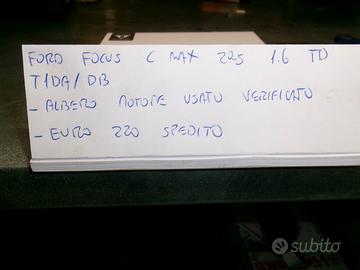 FORD FOCUS C MAX 205 1.6 TD
T1DA/DB
- ALBERO MOTORE USATO VERIFICATO
- EURO 220 SPEDITO
subito